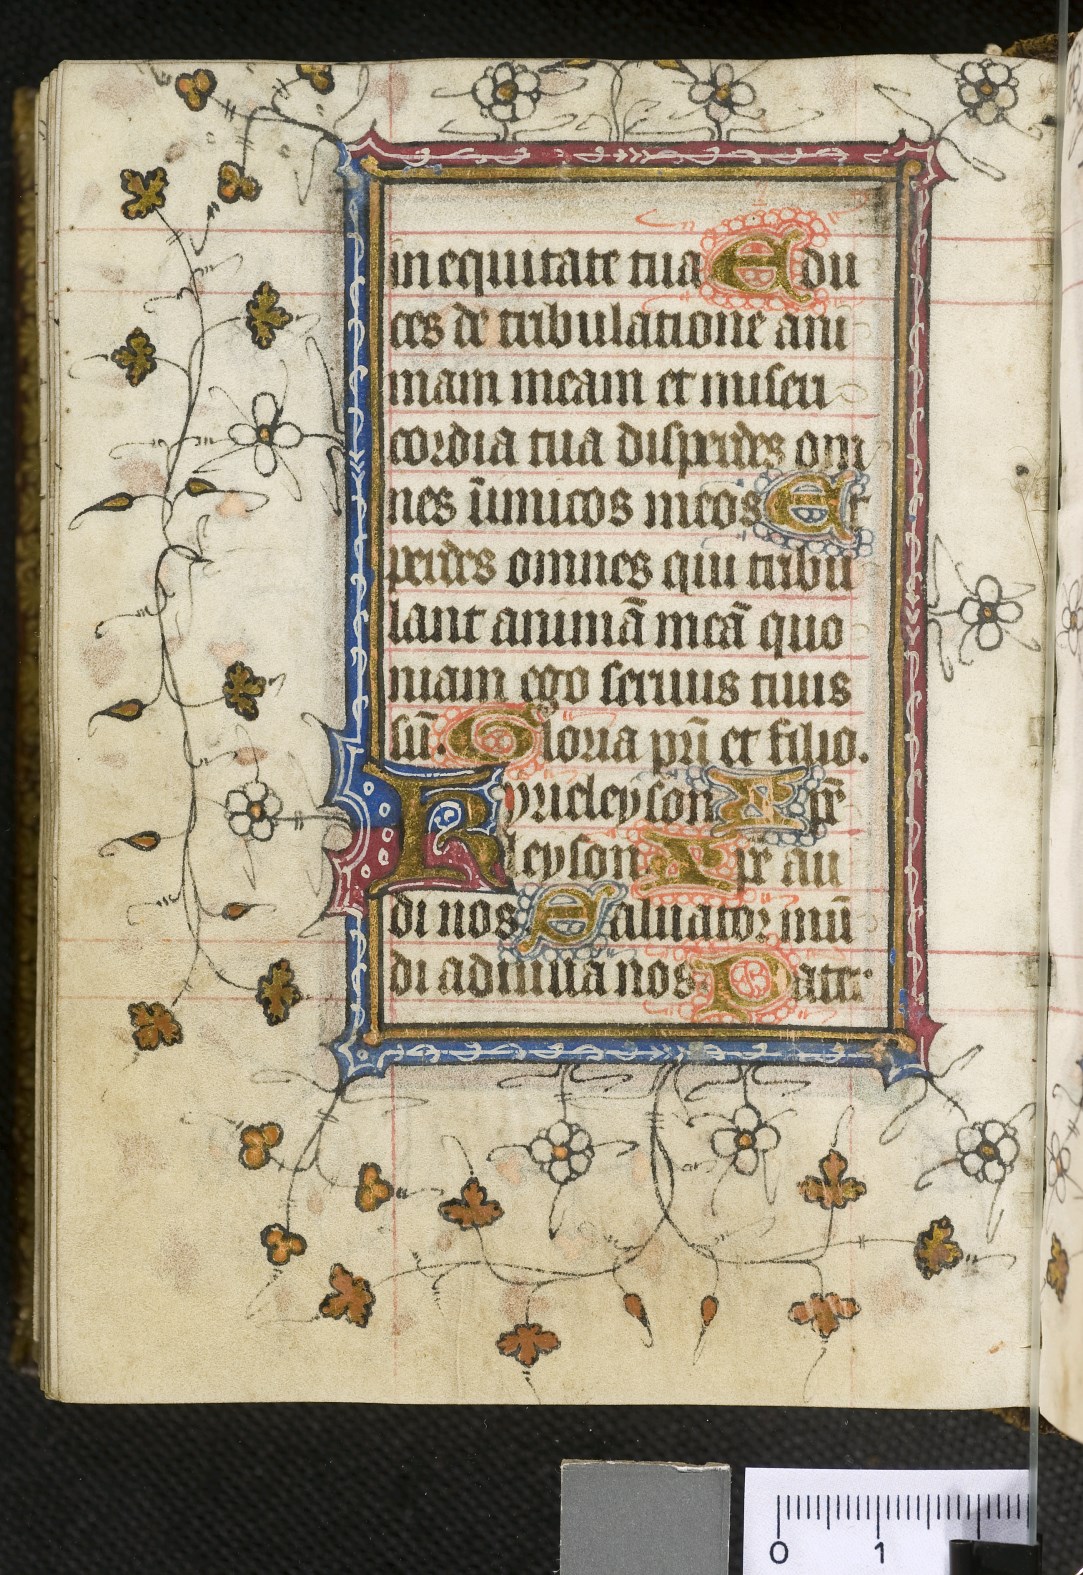 in equitate tua Edu
ces de tribulatione ani
mam meam et miseri
cordia tua disperdes om
nes īimicos meos Et
perdes omnes qui tribu
lant animā meā quo
niam ego seruus tuus
sū. Gloria pr̄i et filio.
Kyrieleyson Xp̄e
leyson Xp̄e au
di nos Saluator mū
di adiuua nos Pater
0 1